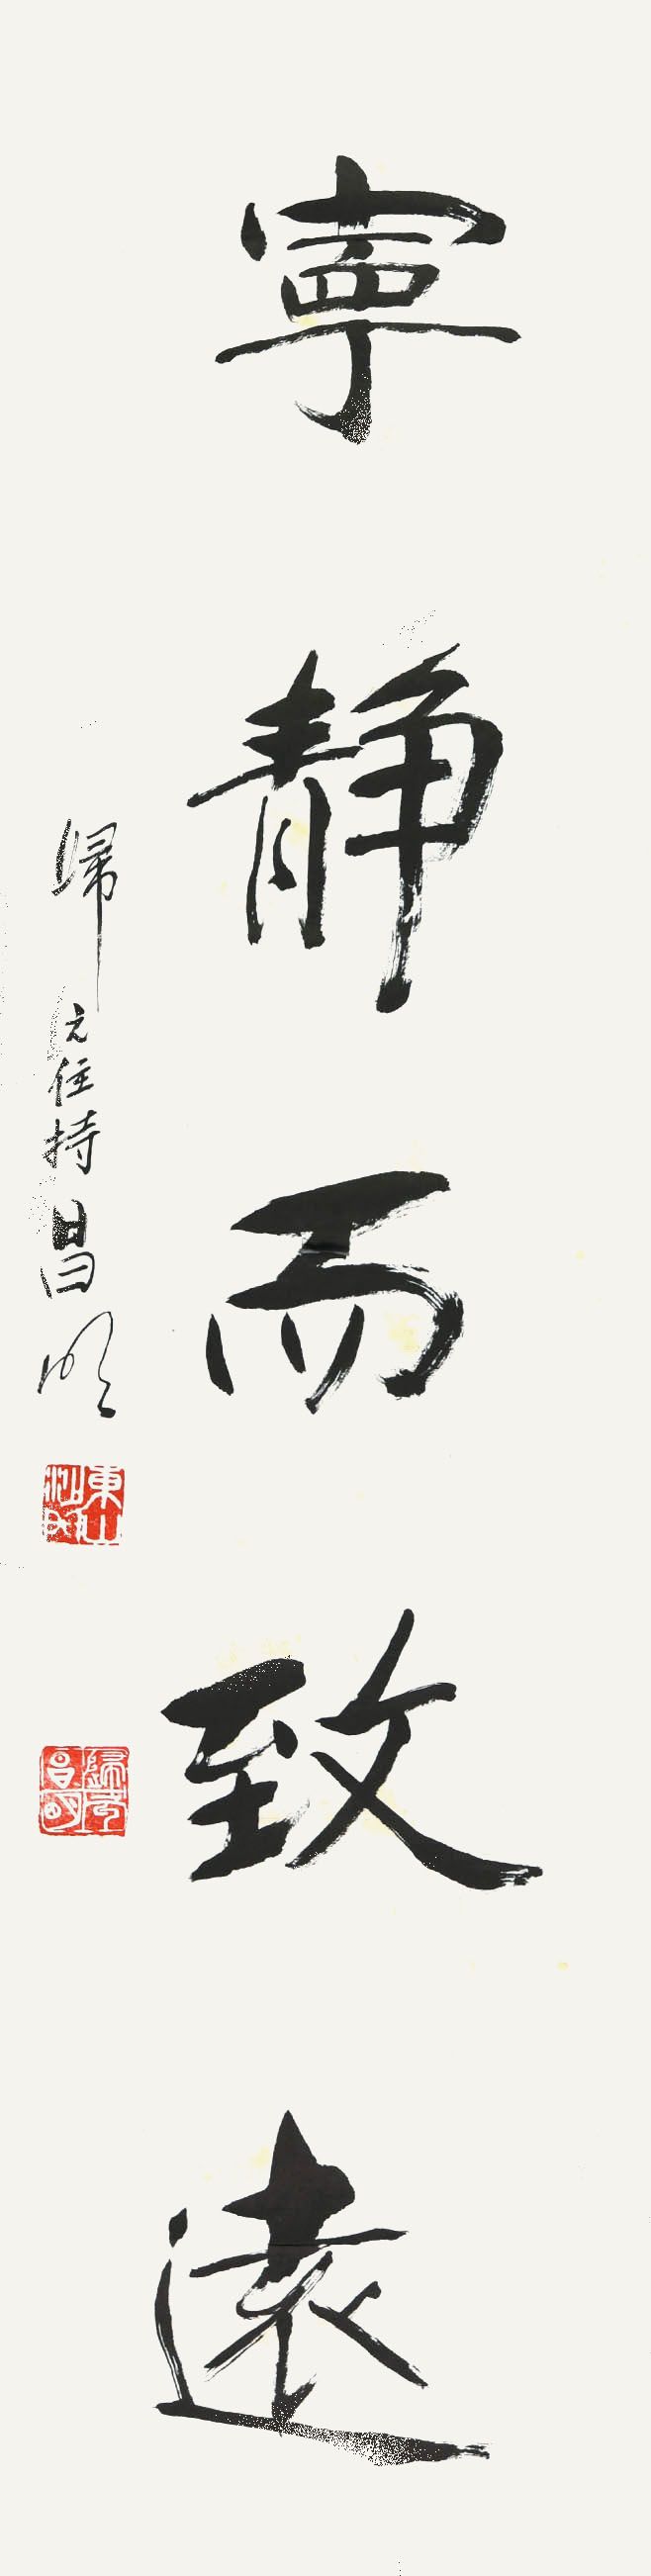 寧静而致遠
歸元住持昌明
東山法門
歸元昌明